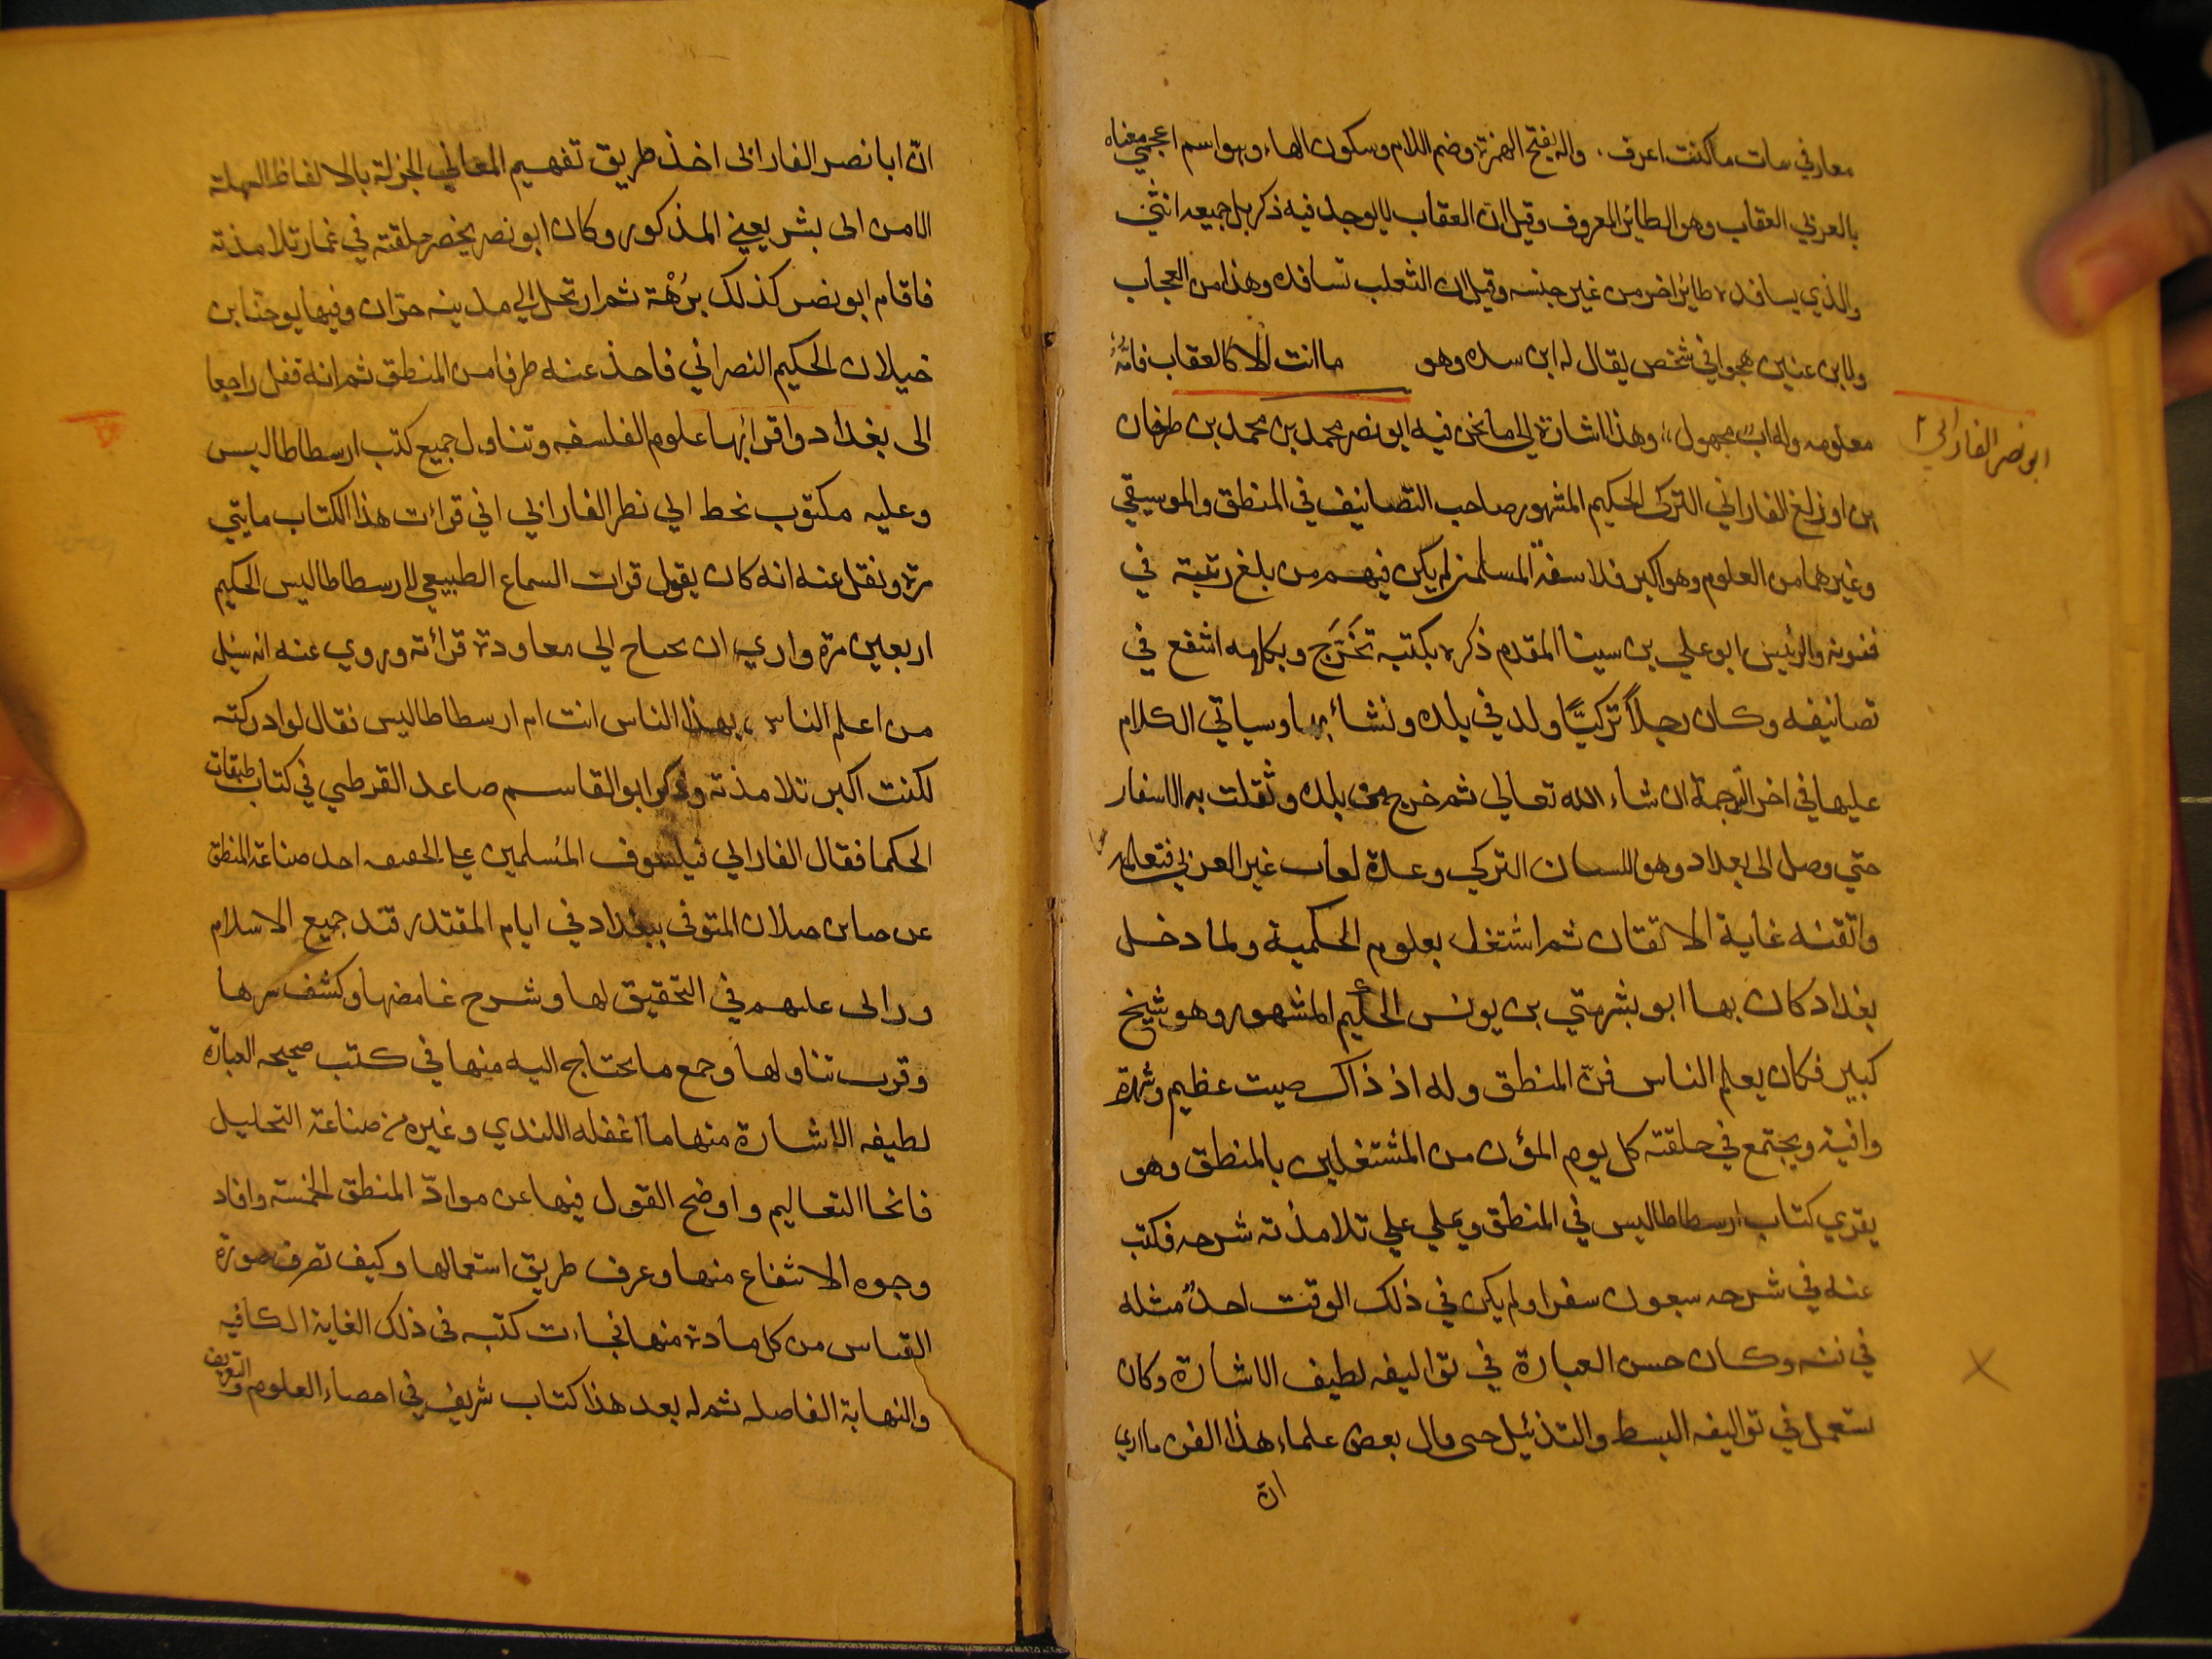 معارفي سات ما كنت اعرف. واله بفتح الهمزة وضم اللام وسكون الهاء وهو اسم اعجمي معناه
بالعربي العقاب وهو الطائر المعروف وقيل ان العقاب لا يوجد فيه ذكر بل جميعه انثي
والذي يسافده طائر اخر من غير جنسه وقيل ان الثعلب تسافده وهذا من العجاب
ولابن عنين هجوا في شخص يقال له ابن سده وهو ما انت الا كالعقاب فامه
معلومه وله اب مجهول، وهذا اشارة الي ما نحن فيه ابو نصر محمد بن محمد بن طرخان
ابو نصر الفارابي
ابن اوزلغ الفارابي التركى الحكيم المشهور صاحب التصانيف في المنطق والموسيقي
وغيرهما من العلوم وهو اكبر فلاسفة المسلمين لم يكن فيهم من بلغ رتبته في
فنونه والرئيس ابو علي بن سينا المقدم ذكره بكتبه تخرّج وبكلامه انتفع في
تصانيفه وكان رجلاً تركيًّا ولد في بلده ونشأ بها وسياتي الكلام
عليها في اخر الترجمة ان شاء الله تعالي ثم خرج من بلده وتقلت به الاسفار
حتي وصل الى بغداد وهو اللسان التركي وعدة لغات غير العربي فتعلمه
واتقنه غاية الاتقان ثم اشتغل بعلوم الحكمية ولما دخل
بغداد كان بها ابو بشر متي بن يونس الحكيم المشهور وهو شيخ
كبير فكان يعلم الناس فن المنطق وله اذ ذاك صيت عظيم وشهرة
وافية ويجتمع في حلقته كل يوم المؤن من المشتغلين بالمنطق وهو
يقري كتاب ارسطاطاليس في المنطق ويملي علي تلامذته شرحه فكتب
عنه في شرحه سبعون سفرا ولم يكن في ذلك الوقت احدٌ مثله
في فنه وكان حسن العبارة في تواليفه لطيف الاشارة وكان
يستعمل في تواليفه البسط والتذئيل حى قال بعض علماء هذا الفن ما اري
ان
انّ ابا نصر الفارابى اخذ طريق تفهيم المعاني الجزلة بالالفاظ السهلة
الا من ابى بشر يعني المذكور وكان ابو نصر يحضر حلقته في غمار تلامذته
فاقام ابو نصر كذلك بُرْهة ثم ارتحل الي مدينه حران وفيها يوحنا بن
خيلان الحكيم النصراني فاخذ عنه طرفا من المنطق ثم انه قفل راجعا
الى بغداد واقرا بها علوم الفلسفه وتناول جميع كتب ارسطاطاليس
وعليه مكتوب بخط ابي نصر الفارابي اني قرات هذا الكتاب مايتي
مرة ونقل عنه انه كان يقول قرات السماع الطبيعي لارسطاطاليس الحكيم
اربعين مرة واري ان محتاج الي معاودة قرائته وروي عنه انه سئل
من اعلم الناس بهذا الناس انت ام ارسطاطاليس فقال لو ادركته
لكنت اكبر تلامذته وذكر ابو القاسم صاعد القرطبي في كتاب طبقات
الحكما فقال الفارابي فيلسوف المسلمين علي الحقيقه اخذ صناعة المنطق
عن حنا بن حيلان المتوفى ببغداد في ايام المقتدر فبذ جميع الاسلام
وربى عليهم في التحقيق لها وشرح غامضها وكشف سرها
وقرب تناولها وجمع ما يحتاج اليه منها في كتب صحيحه العبارة
لطيفه الاشارة منها ما اغفله الكندي وغيره من صناعة التحليل
وانحا التعاليم واوضح القول فيها عن موادّ المنطق الخمسة وافاد
وجوه الانتفاع منها وعرف طريق استعمالها وكيف تصرف صورة
القياس من كل مادة منها فجاءت كتبه في ذلك الغاية الكافيه
والنهاية الفاصله ثم له بعد هذا كتاب شريف في احصاء العلوم والتعريف